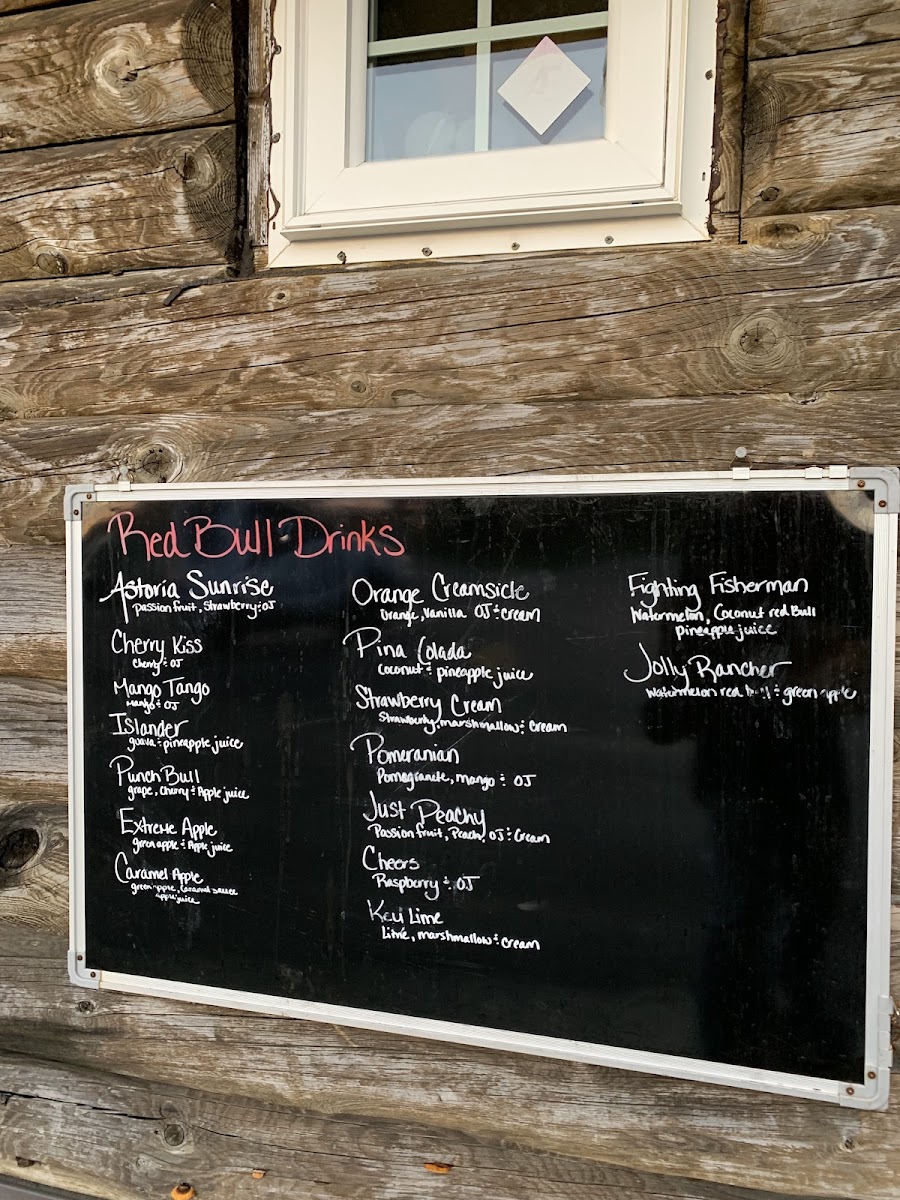 Red Bull Drinks
Astoria Sunrise
Passion fruit, Strawberry & OJ
Cherry Kiss
Cherry & OJ
Mango Tango
Mango & OJ
Islander
guava & pineapple juice
Punch Bull
grape, Cherry & Apple juice
Extreme Apple
green apple & Apple juice
Caramel Apple
green apple, Caramel sauce
apple juice
Orange Creamsicle
Orange, Vanilla OJ & cream
Pina Colada
Coconut & pineapple juice
Strawberry Cream
Strawberry, marshmallow & cream
Pomeranian
Pomegranete, mango & OJ
Just Peachy
Passion fruit, Peach, OJ & Cream
Cheers
Raspberry & OJ
Key Lime
Lime, marshmallow & cream
Fighting Fisherman
Watermelon, Coconut red Bull
pineapple juice
Jolly Rancher
Watermelon red bull & green apple